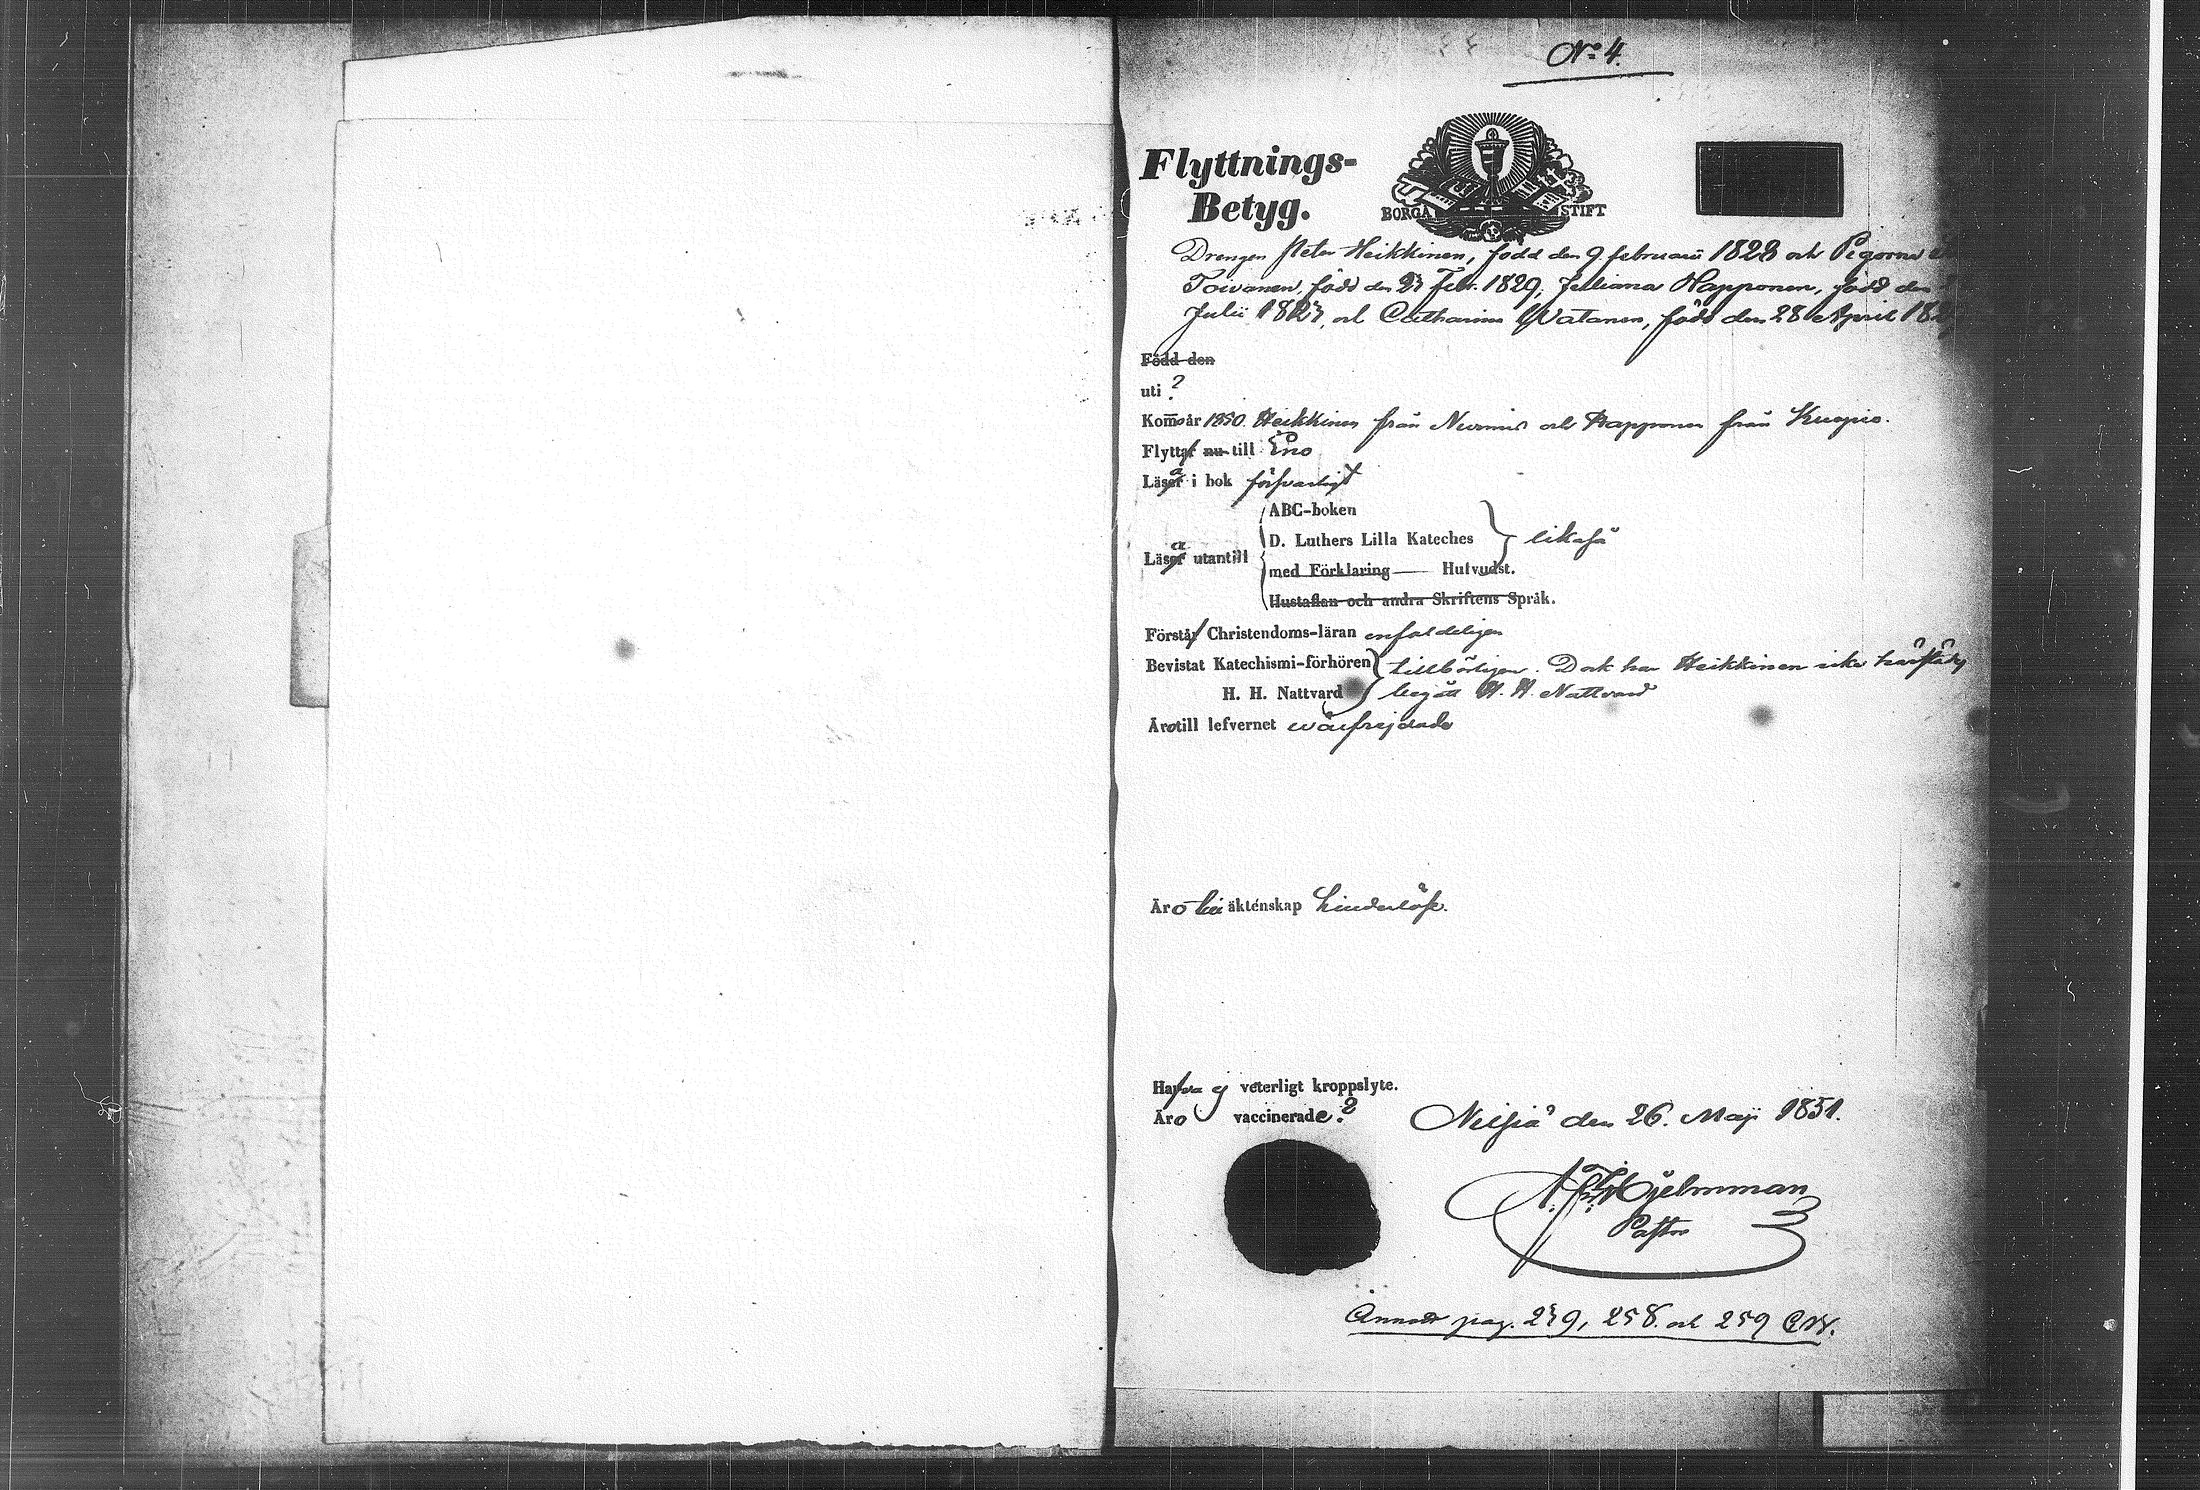 No 4.
Flyttnings-
Betyg.
BORGÅ STIFT
Drengen Peter Heikkinen, född den 9 februarii 1828 och Pigorna
Toivanen, född den 27 Febr. 1829, Juliana Happonen, född den
Julii 1827, och Catharina Watanen, född den 28 April 182
Född den
uti ?
Kommo år 1850. Heikkinen från Nurmis och Happonen från Kuopio.
Flytta nu till Eno
Läsa i bok försvarligt
ABC-boken
Läsa utantill D. Luthers Lilla Kateches likaså
med Förklaring — Hufvudst.
Hustaflan och andra Skriftens Språk.
Förstå Christendoms-läran enfaldeligen
Bevistat Katechismi-förhören tillbörligen. Dock har Heikkinen icke härstädes
H. H. Nattvard begått H. H. Nattvard
Äro till lefvernet wälfrejdade
Äro till äktenskap hinderlöse.
Hafva ej veterligt kroppslyte.
Äro vaccinerade ?
Nilsiä den 26. Maji 1851.
Hjelmman
Pastor
Annoter pag. 239, 258. och 259 CW.